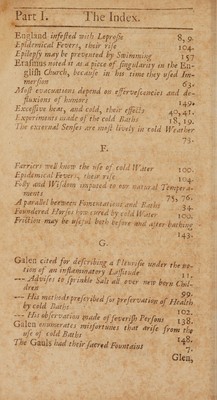 Part I. The Index.
England infested with Leprosie 8, 9.
Epidemical Fevers, their rise 104.
Epilepsy may be prevented by Swimming 157
Erasmus noted it as a piece of singularity in the En-
glish Church, because in his time they used Im-
mersion 63.
Most evacuations depend on effervescencies and de-
fluxions of humors 149.
Excessive heat, and cold, their effects 40, 41.
Experiments made of the cold Baths 18, 19.
The external Senses are most lively in cold Weather
73.
F.
Farriers well know the use of cold Water 100.
Epidemical Fevers, there rise 104.
Folly and Wisdom imputed to our natural Tempera-
ments 75, 76.
A parallel between Fomentations and Baths 34.
Foundered Horses how cured by cold Water 100.
Friction may be useful both before and after bathing
143.
G.
Galen cited for describing a Pleurisie under the no-
tion of an inflammatory Lassitude 11.
— Advises to sprinkle Salt all over new born Chil-
dren 99.
— His methode prescribed for preservation of Health
by cold Baths 102.
— His observation made of feverish Persons 138.
Galen enumerates misfortunes that arise from the
use of cold Baths 148.
The Gauls had their sacred Fountains 7.
Glen,